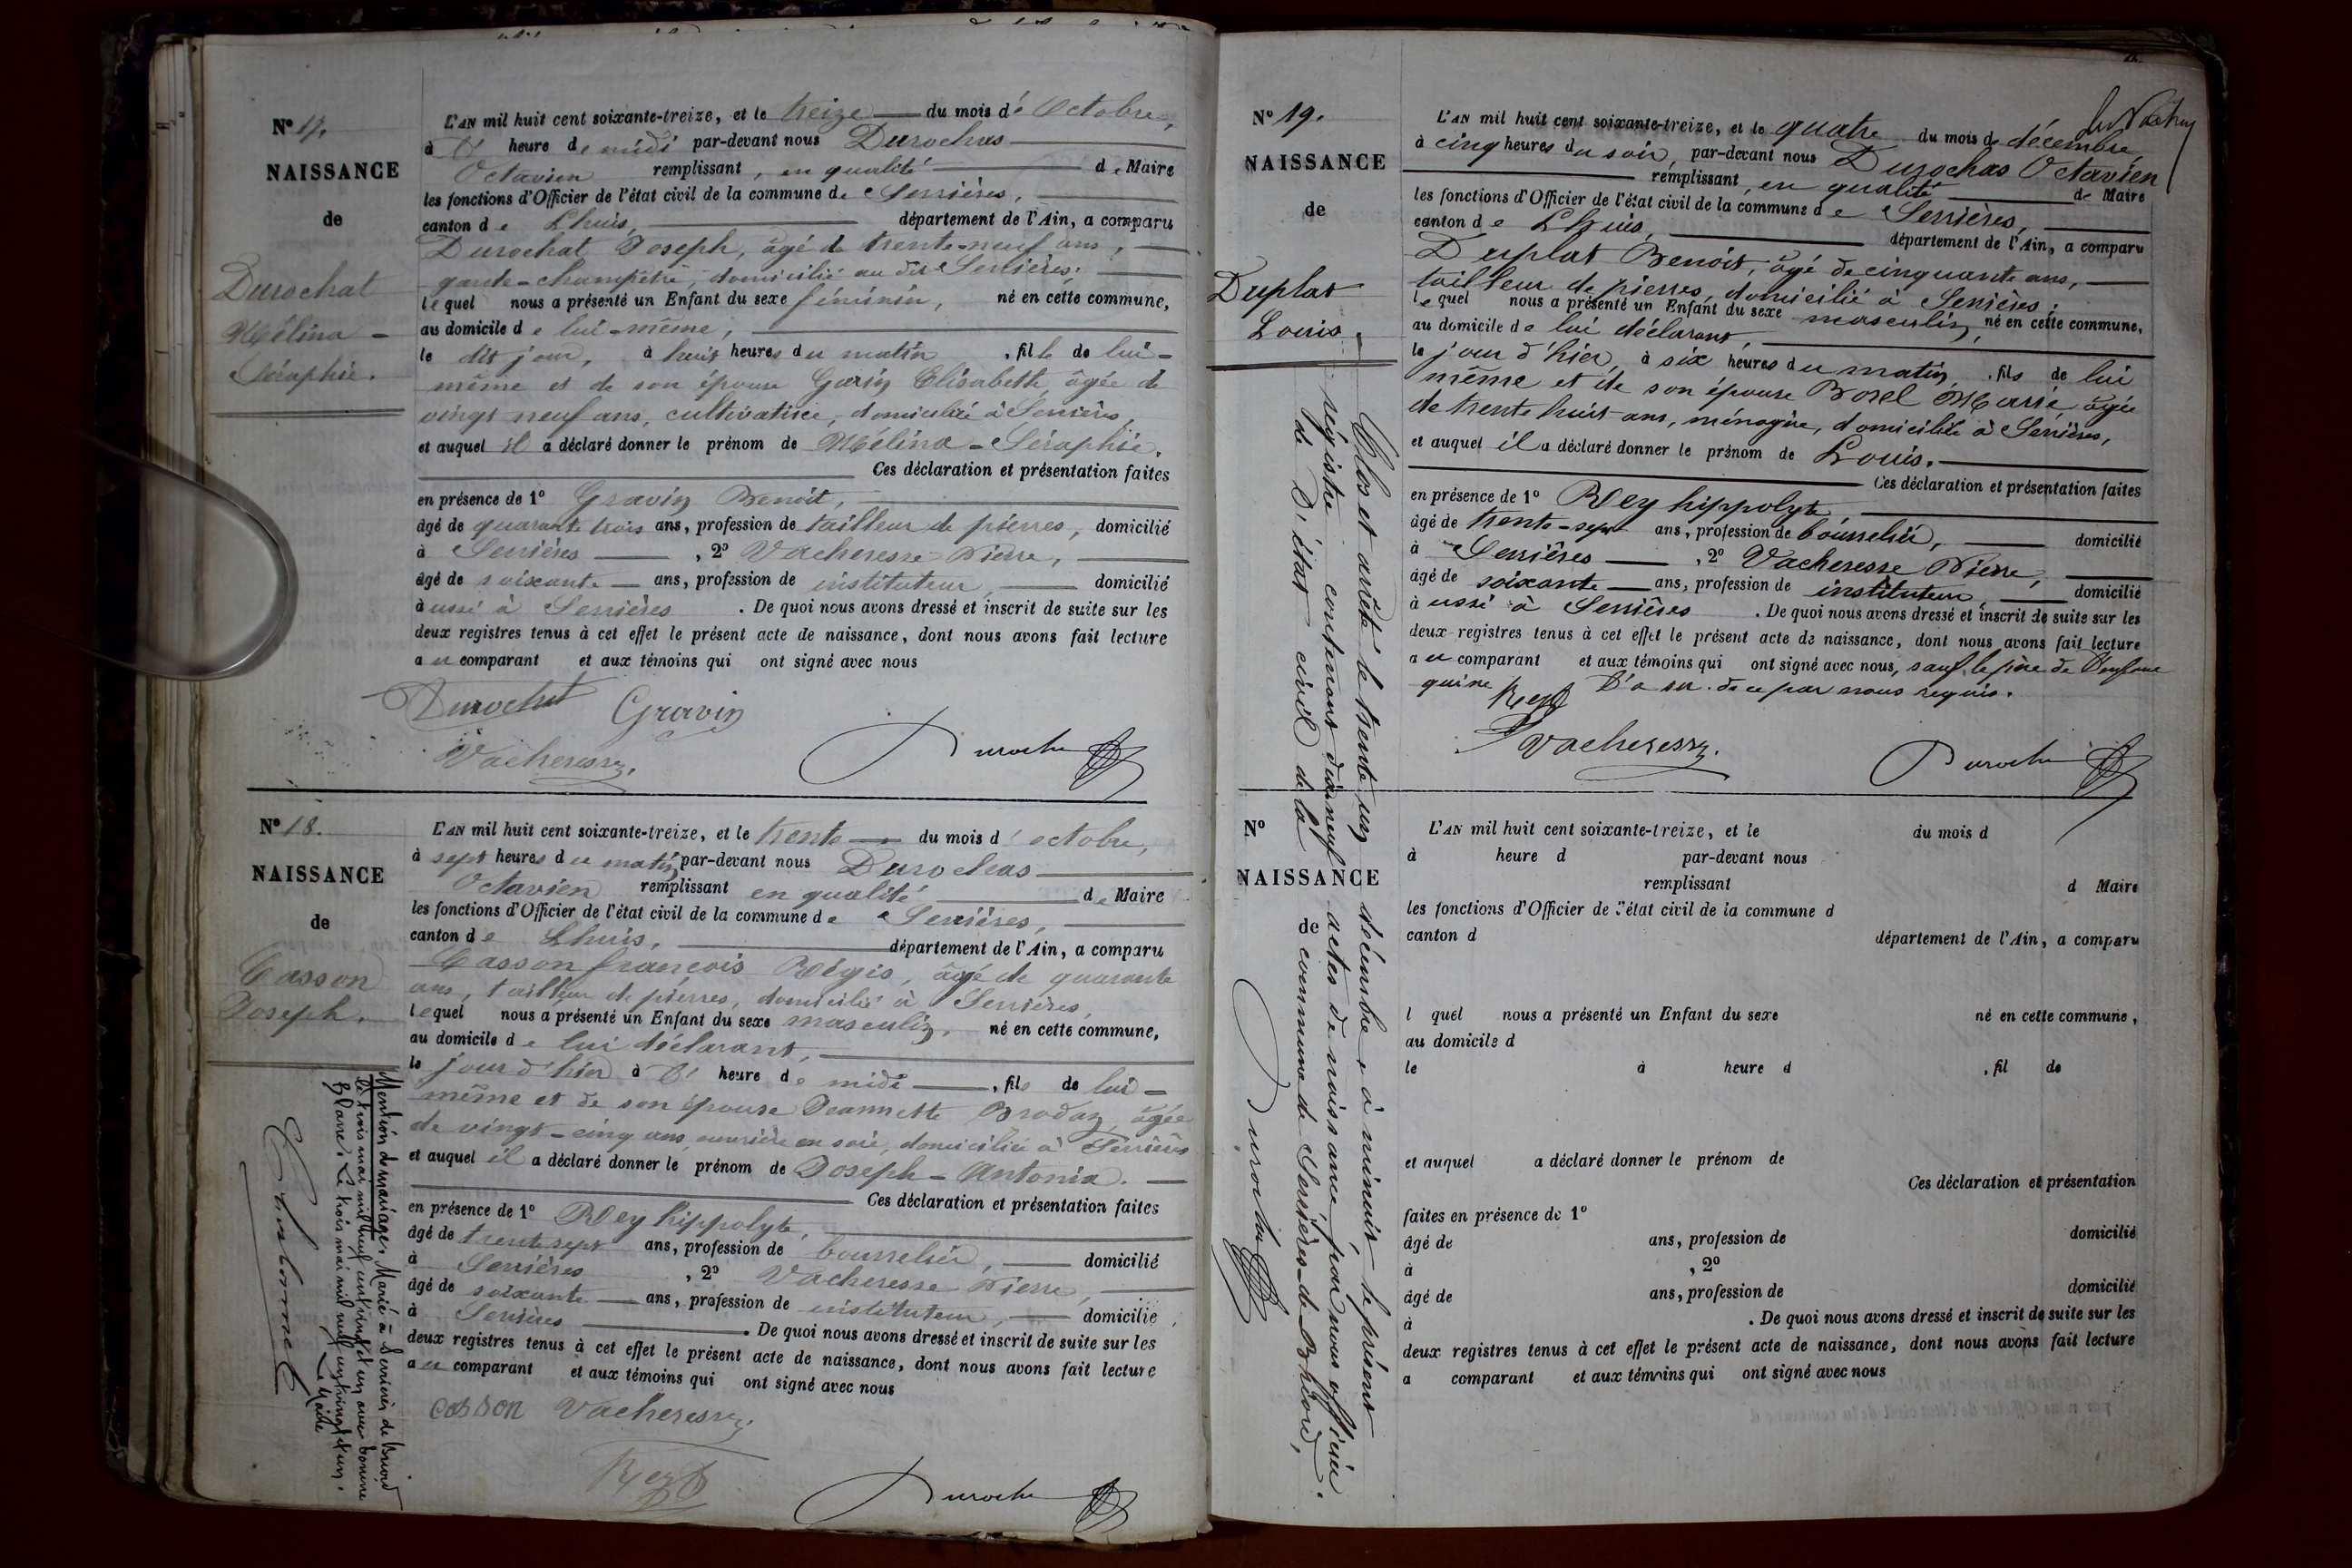 N° 17.
NAISSANCE
de
Durochat
Mélina -
Séraphie.
L'AN mil huit cent soixante-treize, et le treize du mois d'Octobre,
à l' heure de midi par-devant nous Durochas
Octavien remplissant, en qualité de Maire
les fonctions d'Officier de l'état civil de la commune de Serrières,
canton de Lhuis, département de l'Ain, a comparu
Durochat Joseph, âgé de trente-neuf ans,
garde-champêtre, domicilié au dit Serrières;
lequel nous a présenté un Enfant du sexe féminin, né en cette commune,
au domicile de lui-même,
le dit jour, à huit heures du matin, fille de lui-
même et de son épouse Garin Elisabeth, âgée de
vingt neuf ans, cultivatrice, domiciliée à Serrières,
et auquel il a déclaré donner le prénom de Mélina-Séraphie.
Ces déclaration et présentation faites
en présence de 1° Gravin Benoit,
âgé de quarante trois ans, profession de tailleur de pierres, domicilié
à Serrières, 2° Vacheresse Pierre,
âgé de soixante ans, profession de instituteur, domicilié
aussi à Serrières. De quoi nous avons dressé et inscrit de suite sur les
deux registres tenus à cet effet le présent acte de naissance, dont nous avons fait lecture
au comparant et aux témoins qui ont signé avec nous
Durochat Gravin
Vacheresse. Durochas
N° 18.
NAISSANCE
de
Casson
Joseph.
L'AN mil huit cent soixante-treize, et le trente du mois d'octobre,
à sept heures du matin par-devant nous Durochas
Octavien remplissant en qualité de Maire
les fonctions d'Officier de l'état civil de la commune de Serrières,
canton de Lhuis, département de l'Ain, a comparu
Casson françois Régis, âgé de quarante
ans, tailleur de pierres, domicilié à Serrières,
lequel nous a présenté un Enfant du sexe masculin, né en cette commune,
au domicile de lui déclarant,
le jour d'hier à l' heure de midi, fils de lui-
même et de son épouse Jeannette Brodaz, âgée
de vingt-cinq ans, ouvrière en soie, domiciliée à Serrières
et auquel il a déclaré donner le prénom de Joseph-Antonia.
Ces déclaration et présentation faites
en présence de 1° Rey hippolyte,
âgé de trente sept ans, profession de bourrelier, domicilié
à Serrières, 2° Vacheresse Pierre,
âgé de soixante ans, profession de instituteur, domicilié
à Serrières. De quoi nous avons dressé et inscrit de suite sur les
deux registres tenus à cet effet le présent acte de naissance, dont nous avons fait lecture
au comparant et aux témoins qui ont signé avec nous
casson Vacheresse
Rey Durochas
Mention de mariage. Marié à Serrières de Briord
le trois mai mil neuf cent vingt et un avec Bonne
Le trois mai mil neuf cent vingt et un.
Le Maire
N° 19.
NAISSANCE
de
Duplat
Louis.
L'AN mil huit cent soixante-treize, et le quatre du mois de décembre
à cinq heures du soir, par-devant nous Durochas Octavien
remplissant, en qualité de Maire
les fonctions d'Officier de l'état civil de la commune de Serrières,
canton de Lhuis, département de l'Ain, a comparu
Duplat Benoit, âgé de cinquante ans,
tailleur de pierres, domicilié à Serrières;
lequel nous a présenté un Enfant du sexe masculin, né en cette commune,
au domicile de lui déclarant,
le jour d'hier, à six heures du matin, fils de lui
même et de son épouse Borel Marie âgée
de trente huit ans, ménagère, domiciliée à Serrières,
et auquel il a déclaré donner le prénom de Louis.
Ces déclaration et présentation faites
en présence de 1° Rey hippolyte
âgé de trente-sept ans, profession de bourrelier, domicilié
à Serrières, 2° Vacheresse Pierre,
âgé de soixante ans, profession de instituteur, domicilié
aussi à Serrières. De quoi nous avons dressé et inscrit de suite sur les
deux registres tenus à cet effet le présent acte de naissance, dont nous avons fait lecture
au comparant et aux témoins qui ont signé avec nous, sauf le père de l'enfant
qui ne l'a su. de ce par nous requis.
Rey
Vacheresse. Durochas
Clos et arrêté le trente un décembre, à minuit, le présent
registre contenant dix neuf actes de naissance, par nous officier
de l'état civil de la commune de Serrières-de-Briord,
Durochas
N°
NAISSANCE
de
L'AN mil huit cent soixante-treize, et le du mois d
à heure d par-devant nous
remplissant d Maire
les fonctions d'Officier de l'état civil de la commune d
canton d département de l'Ain, a comparu
l quel nous a présenté un Enfant du sexe né en cette commune,
au domicile d
le à heure d , fil de
et auquel a déclaré donner le prénom de
Ces déclaration et présentation
faites en présence de 1°
âgé de ans, profession de domicilié
à , 2°
âgé de ans, profession de domicilié
à . De quoi nous avons dressé et inscrit de suite sur les
deux registres tenus à cet effet le présent acte de naissance, dont nous avons fait lecture
a comparant et aux témoins qui ont signé avec nous